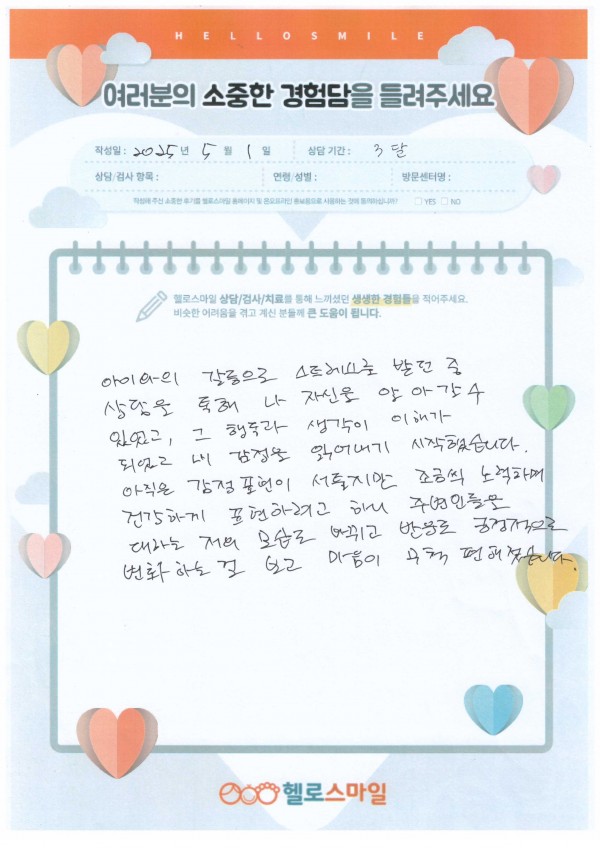 HELLOSMILE
여러분의 소중한 경험담을 들려주세요
작성일 : 2025 년 5 월 1 일 상담 기간 : 3달
상담/검사 항목 : 연령/성별 : 방문센터명 :
작성해 주신 소중한 후기를 헬로스마일 홈페이지 및 온오프라인 홍보용으로 사용하는 것에 동의하십니까? YES NO
헬로스마일 상담/검사/치료를 통해 느끼셨던 생생한 경험들을 적어주세요.
비슷한 어려움을 겪고 계신 분들께 큰 도움이 됩니다.
아이와의 갈등으로 스트레스를 받던 중
상담을 통해 나 자신을 알아갈수
있었고, 그 행동과 생각이 이해가
되었고 내 감정을 읽어내기 시작했습니다.
아직은 감정표현이 서툴지만 조금씩 노력하며
건강하게 표현하려고 하니 주변인들을
대하는 저의 모습도 바뀌고 반응도 긍정적으로
변화하는걸 보고 마음이 무척 편해졌습니다.
헬로스마일